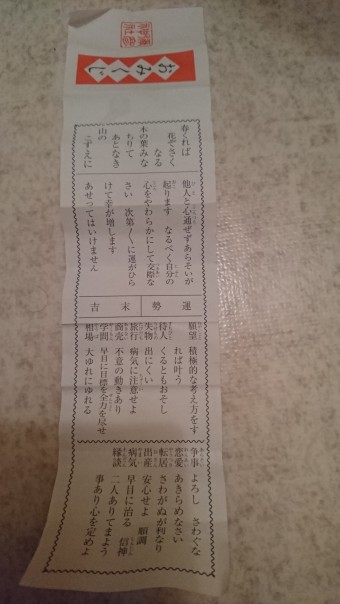 神社
おみくじ
春くれば
花ぞさく
なる
木の葉みな
ちりて
あとなき
山の
こずえに
他人と心通ぜずあらそいが
起ります なるべく自分の
心をやわらかにして交際な
さい 次第〳〵に運がひら
けて幸が増します
あせってはいけません
運勢
末吉
願望 積極的な考え方をす
れば叶う
待人 くるともおそし
失物 出にくい
旅行 病気に注意せよ
商売 不意の動きあり
学問 早目に目標を全力を尽せ
相場 大ゆれにゆれる
争事 よろし さわぐな
恋愛 あきらめなさい
転居 さわがぬが利なり
出産 安心せよ 順調
病気 早目に治る 信神
縁談 二人ありてまよう
事あり心を定めよ